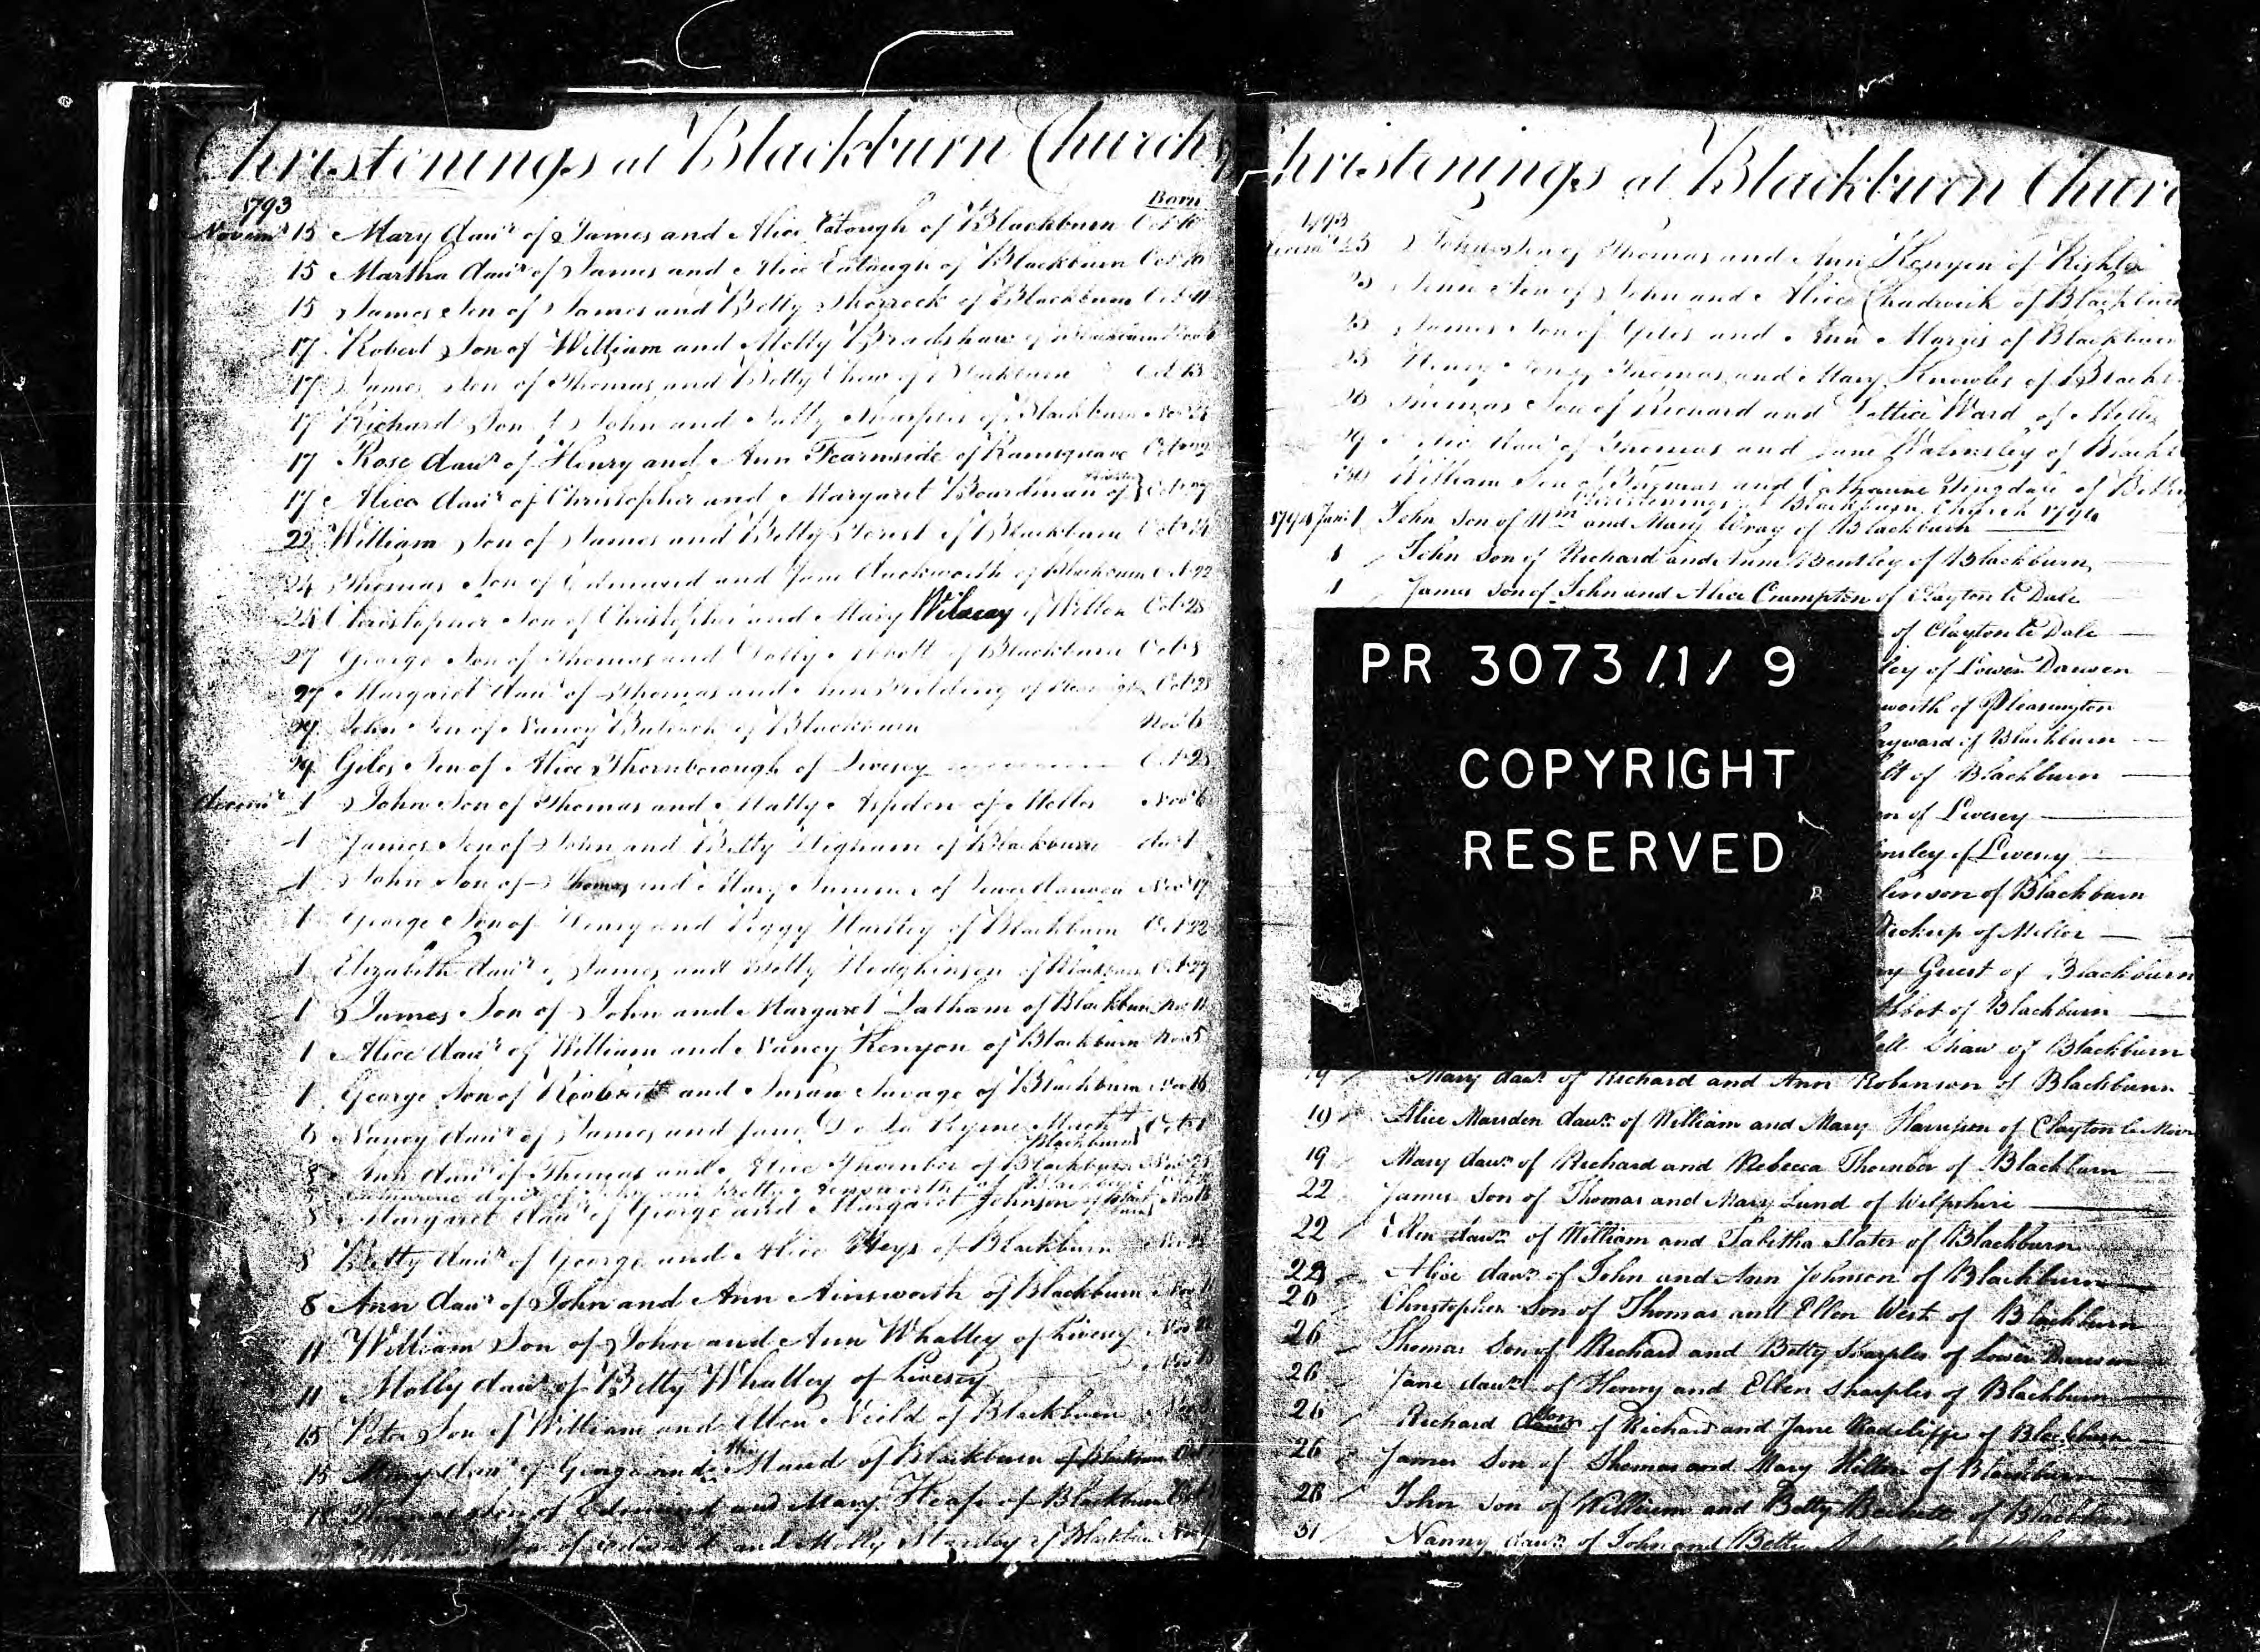 Christenings at Blackburn Church
1793 Born
Novemr 15 Mary daur of James and Alice Eatough of Blackburn Octr 10
15 Martha daur of James and Alice Eatough of Blackburn Octr 10
15 James Son of James and Betty Shorrock of Blackburn Octr 11
17 Robert Son of William and Molly Bradshaw of
17 James Son of Thomas and Betty Chew of Blackburn Octr 13
17 Richard Son of John and Sally Sharples of Blackburn Novr
17 Rose daur of Henry and Ann Fearnside of Ramsgreave Octr
17 Alice daur of Christopher and Margaret Boardman of Octr
22 William Son of James and Betty Forest of Blackburn Octr
24 Thomas Son of Edmund and Jane Duckworth of Blackburn Octr 22
24 Christopher Son of Christopher and Mary of Witton Octr 28
27 George Son of Thomas and Dolly Abbott of Blackburn Octr 8
27 Margaret daur of Thomas and Ann Feilding of Octr 28
29 John Son of Nancy of Blackburn Novr 6
29 Giles Son of Alice Thornborough of Livesey Octr 28
Decemr 1 John Son of Thomas and Matty Aspden of Mellor Novr 6
1 James Son of John and Betty Dignam of Blackburn do 1
1 John Son of Thomas and Mary Summer of Lower Darwen Novr 17
1 George Son of Henry and Peggy Hartley of Blackburn Octr 22
1 Elizabeth daur of James and Betty Hodghinson of Blackburn Octr 27
1 James Son of John and Margaret Latham of Blackburn Novr 11
1 Alice daur of William and Nancy Kenyon of Blackburn Novr 5
1 George Son of Robert and Susan Savage of Blackburn Novr 16
6 Nancy daur of James and Jane De La Pryme Octr
Blackburn
8 Ann daur of Thomas and Alice Thornber of Blackburn Novr
8 Catharine daur of John and Betty Ainsworth of Blackburn
8 Margaret daur of George and Margaret Johnson of
8 Betty daur of George and Alice Heys of Blackburn Novr
8 Ann daur of John and Ann Ainsworth of Blackburn Novr
11 William Son of John and Ann Whalley of Livesey Novr
11 Molly daur of Betty Whalley of Livesey
15 Peter Son of William and Ellen Neild of Blackburn
15 Mary daur of George and Maud of Blackburn of Blackburn Octr
18 Thomas Son of Edmund and Mary Heap of Blackburn Octr
Son of Edward and Molly Stanley of Blackburn Novr
Christenings at Blackburn Churc
1793
25 John Son of Thomas and Ann Kenyon of Rishton
25 Son of John and Alice Chadwick of Blackburn
25 James Son of Giles and Ann Morris of Blackburn
25 Henry Son of Thomas and Mary Knowles of Blackb
26 Thomas Son of Richard and Lettice Ward of Mellor
29 Alice daur of Thomas and Jane Walmsley of Blackb
William Son of Thomas and Catharine Tingdale of
Christenings at Blackburn Church 1794
1794 Jany 1 John Son of Wm and Mary Wray of Blackburn
1 John Son of Richard and Ann Bentley of Blackburn
1 James Son of John and Alice Crompton of Clayton le Dale
of Clayton le Dale
ley of Lower Darwen
worth of Pleasington
ayward of Blackburn
tt of Blackburn
on of Livesey
msley of Livesey
linson of Blackburn
Pickup of Mellor
ry Guest of Blackburn
Abbot of Blackburn
ell Shaw of Blackburn
PR 3073 /1/ 9
COPYRIGHT
RESERVED
19 Mary daur of Richard and Ann Robinson of Blackburn
19 Alice Marsden daur of William and Mary Harrison of Clayton le Moor
19 Mary daur of Richard and Rebecca Thornber of Blackburn
22 James Son of Thomas and Mary Lund of Wilpshire
22 Ellen daur of William and Tabitha Slater of Blackburn
22 Alice daur of John and Ann Johnson of Blackburn
26 Christopher Son of Thomas and Ellen West of Blackburn
26 Thomas Son of Richard and Betty Sharples of Lower Darwen
26 Jane daur of Henry and Ellen Sharples of Blackburn
26 Richard Son of Richard and Jane Radcliffe of Blackburn
26 James Son of Thomas and Mary Hilton of Blackburn
28 John Son of William and Betty Beckett of Blackburn
31 Nanny daur of John and Betty